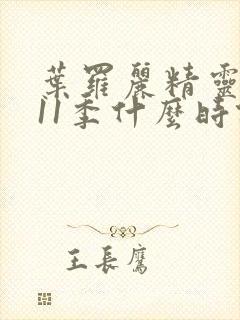 葉羅麗精靈
11季什麼時
王長鷹